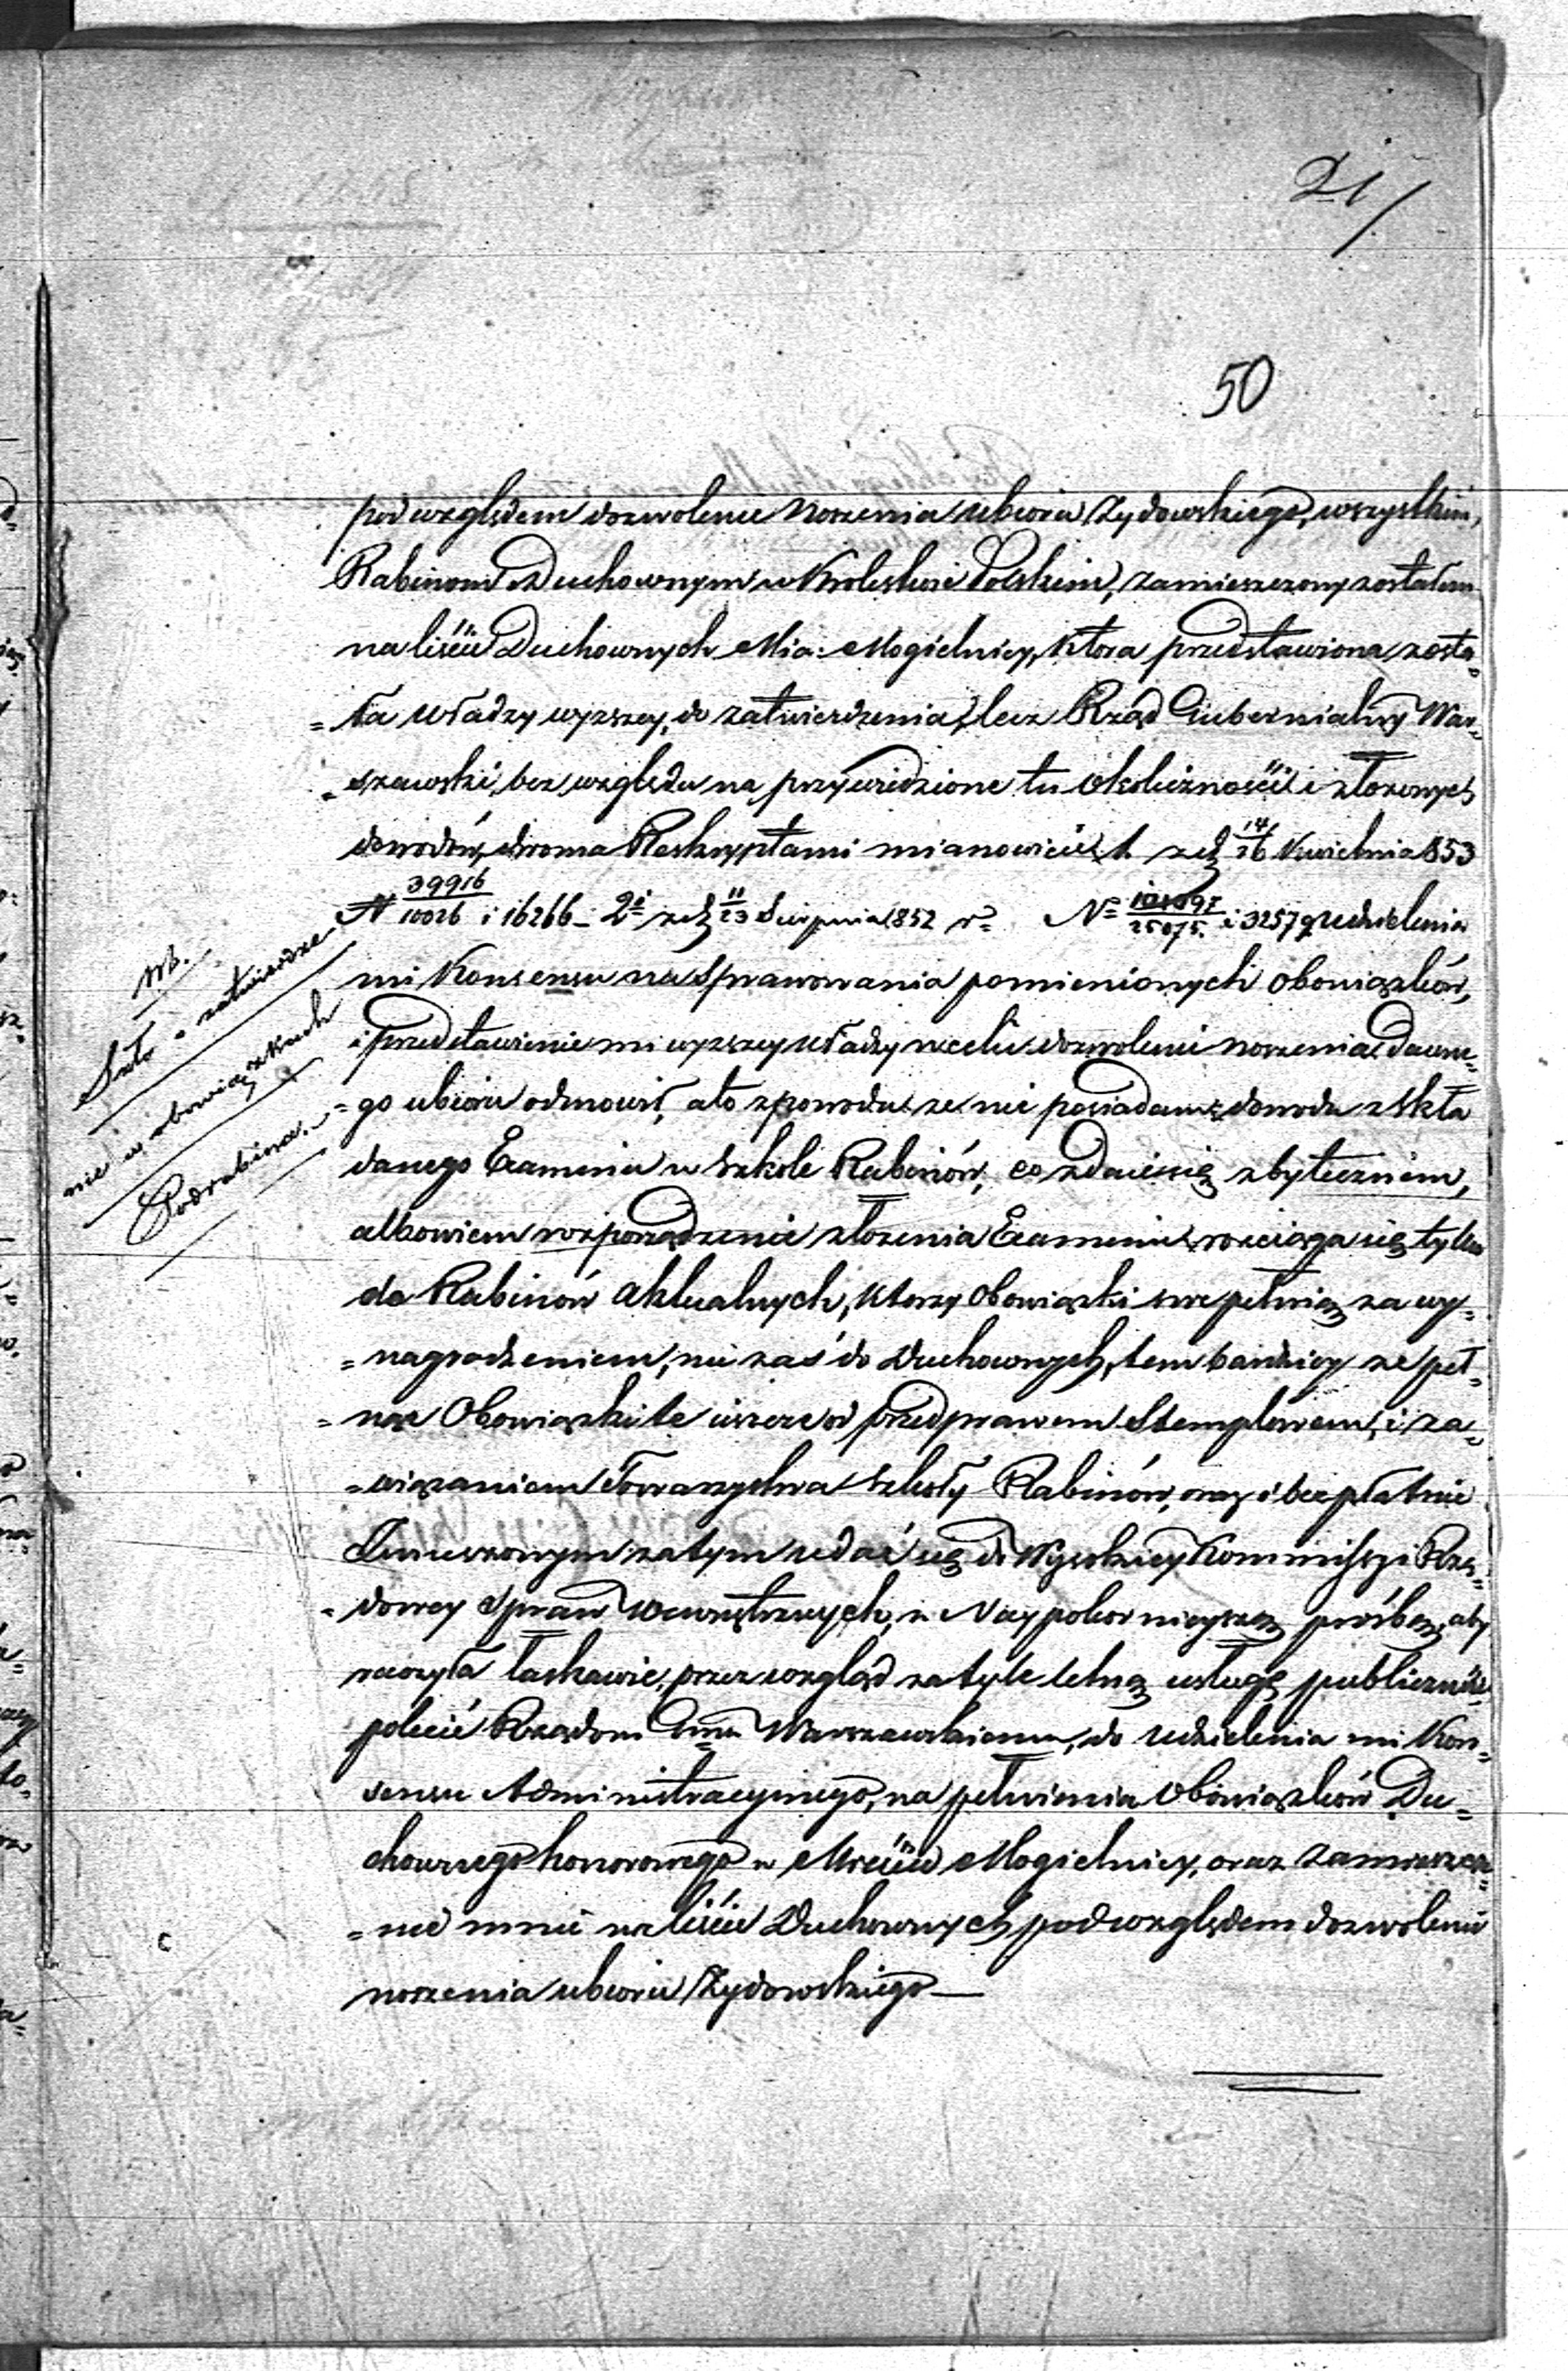 21/
50
pod względem dozwolenia noszenia ubioru Żydowskiego, wszystkim,
Rabinom i Duchownym w Krolestwie Polskim, zamieszczony zostałem
na liście Duchownych Mia: Mogielnicy, ktora przedstawiona zosta=
=ła władzy wyższey, do zatwierdzenia, lecz Rząd Gubernialny War=
=szawski, bez względu na przywiedzione tu okoliczności i złożonych
dowodów, dwoma Reskryptami mianowicie 1. z d. 14/26 Kwietnia 853
N 39916/10026 i 16266 – 2i z d. 11/23 Sierpnia 1852 r. No /25075. i 32579 udzielenia
mi Konsensu na sprawowania pomienionych obowiązków,
i przedstawienie mi wyższey władzy w celu dozwolenia noszenia dawne=
=go ubioru odmowił, a to z powodu że nie posiadam dowodu z skła
danego Examinu w szkole Rabinów, co zdaie się zbytecznem,
albowiem rozporządzenie złożenia Examinu rozciąga się tylko
do Rabinów aktualnych, ktorzy obowiązki swe pełnią za wy=
=nagrodzeniem, nie zaś do Duchownych, tem bardziey że peł=
=nąc Obowiązki te ieszcze od przed prawem Stemplowem, i za=
=wiązaniem Towarzystwa Szkoły Rabinów, oraz i bezpłatnie
Zmuszonym zatym udać się do Wysokiey Kommissyi Rzą=
=dowey Spraw Wewnętrznych, z Naypokornieyszą prośbą, aby
raczyła łaskawie, przez wzgląd za tyle letną usługę publicznie,
polecić Rządowi Gub. Warszawskiemu, do udzielenia mi Kon=
sensu Administracyinego, na pełnienia Obowiązków Du=
chownego honorowego w Mieście Mogielnicy, oraz zamieszcze=
=nie mnie na liście Duchownych pod względem dozwolenia
noszenia ubioru Żydowskiego —
Nb.
o zatwierdze-
nie w obowiązkach
Podrabina.